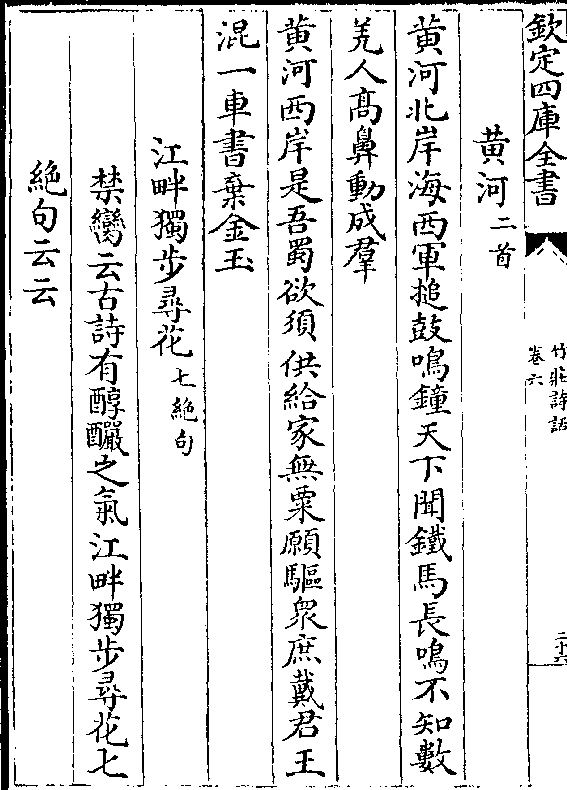 欽定四庫全書
竹莊詩話
卷六
黃河二首
黃河北岸海西軍搥鼓鳴鐘天下聞鐵馬長鳴不知數
羌人髙鼻動成羣
黃河西岸是吾蜀欲須供給家無粟願驅衆庶戴君王
混一車書棄金玉
江畔獨步尋花七絶句
禁臠云古詩有醇釅之氣江畔獨步尋花七
絶句云云